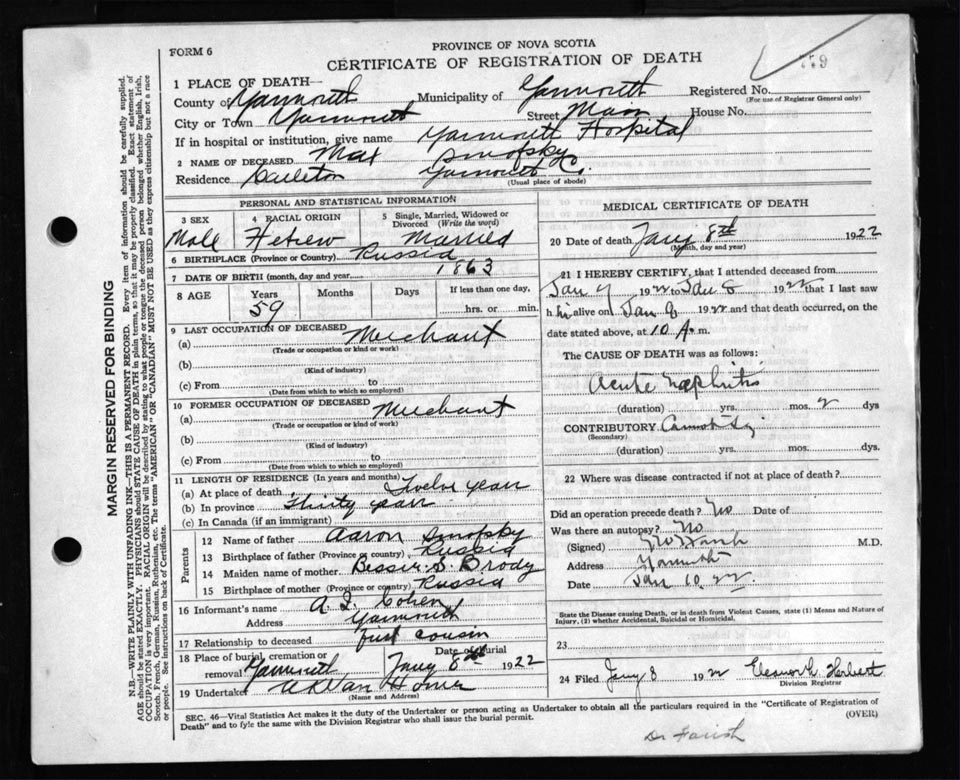 FORM 6
PROVINCE OF NOVA SCOTIA
CERTIFICATE OF REGISTRATION OF DEATH
759
1 PLACE OF DEATH—
County of Yarmouth Municipality of Yarmouth Registered No.
(For use of Registrar General only)
City or Town Yarmouth Street Main House No.
If in hospital or institution, give name Yarmouth Hospital
2 NAME OF DECEASED Max Sinofsky
Residence Carleton Yarmouth Co.
(Usual place of abode)
PERSONAL AND STATISTICAL INFORMATION
3 SEX Male
4 RACIAL ORIGIN Hebrew
5 Single, Married, Widowed or Divorced (Write the word) Married
6 BIRTHPLACE (Province or Country) Russia
7 DATE OF BIRTH (month, day and year) 1863
8 AGE Years Months Days If less than one day,
59 hrs. or min.
9 LAST OCCUPATION OF DECEASED
(a) Merchant
(Trade or occupation or kind or work)
(b)
(Kind of industry)
(c) From to
(Date from which to which so employed)
10 FORMER OCCUPATION OF DECEASED
(a) Merchant
(Trade or occupation or kind of work)
(b)
(Kind of industry)
(c) From to
(Date from which to which so employed)
11 LENGTH OF RESIDENCE (In years and months)
(a) At place of death Twelve years
(b) In province Thirty years
(c) In Canada (if an immigrant)
Parents
12 Name of father Aaron Sinofsky
13 Birthplace of father (Province or country) Russia
14 Maiden name of mother Bessie S. Brody
15 Birthplace of mother (Province or country) Russia
16 Informant's name A. I. Cohen
Address Yarmouth
17 Relationship to deceased first cousin
18 Place of burial, cremation or removal Yarmouth Date of Burial Jany 8th 1922
19 Undertaker Horner
(Name and Address)
MEDICAL CERTIFICATE OF DEATH
20 Date of death Jany 8th 1922
(Month, day and year)
21 I HEREBY CERTIFY, that I attended deceased from
Jan 7 1922 to Jan 8 1922 that I last saw
h im alive on Jan 8 1922 and that death occurred, on the
date stated above, at 10 A. m.
The CAUSE OF DEATH was as follows:
Acute Nephritis
(duration) yrs. mos. 2 dys
CONTRIBUTORY Cannot say
(Secondary)
(duration) yrs. mos. dys.
22 Where was disease contracted if not at place of death?
Did an operation precede death? No Date of
Was there an autopsy? No
(Signed) M.D.
Address Yarmouth
Date Jan 10 22.
State the Disease causing Death, or in death from Violent Causes, state (1) Means and Nature of
Injury, (2) whether Accidental, Suicidal or Homicidal.
23
24 Filed Jany 8 1922 Eleanor G. Herbert
Division Registrar
SEC. 46—Vital Statistics Act makes it the duty of the Undertaker or person acting as Undertaker to obtain all the particulars required in the "Certificate of Registration of
Death" and to fyle the same with the Division Registrar who shall issue the burial permit.
(OVER)
Dr Farish
MARGIN RESERVED FOR BINDING
N.B.—WRITE PLAINLY WITH UNFADING INK—THIS IS A PERMANENT RECORD. Every item of information should be carefully supplied.
AGE should be stated EXACTLY. PHYSICIANS should STATE CAUSE OF DEATH in plain terms, so that it may be properly classified. Exact statement of
OCCUPATION is very important. RACIAL ORIGIN will be described by stating to what people or tongue the deceased person belonged whether English, Irish,
Scotch, French, German, Russian, Ruthenian, etc. The terms "AMERICAN" or "CANADIAN" MUST NOT BE USED as they express citizenship but not a race
or people. See instructions on back of Certificate.